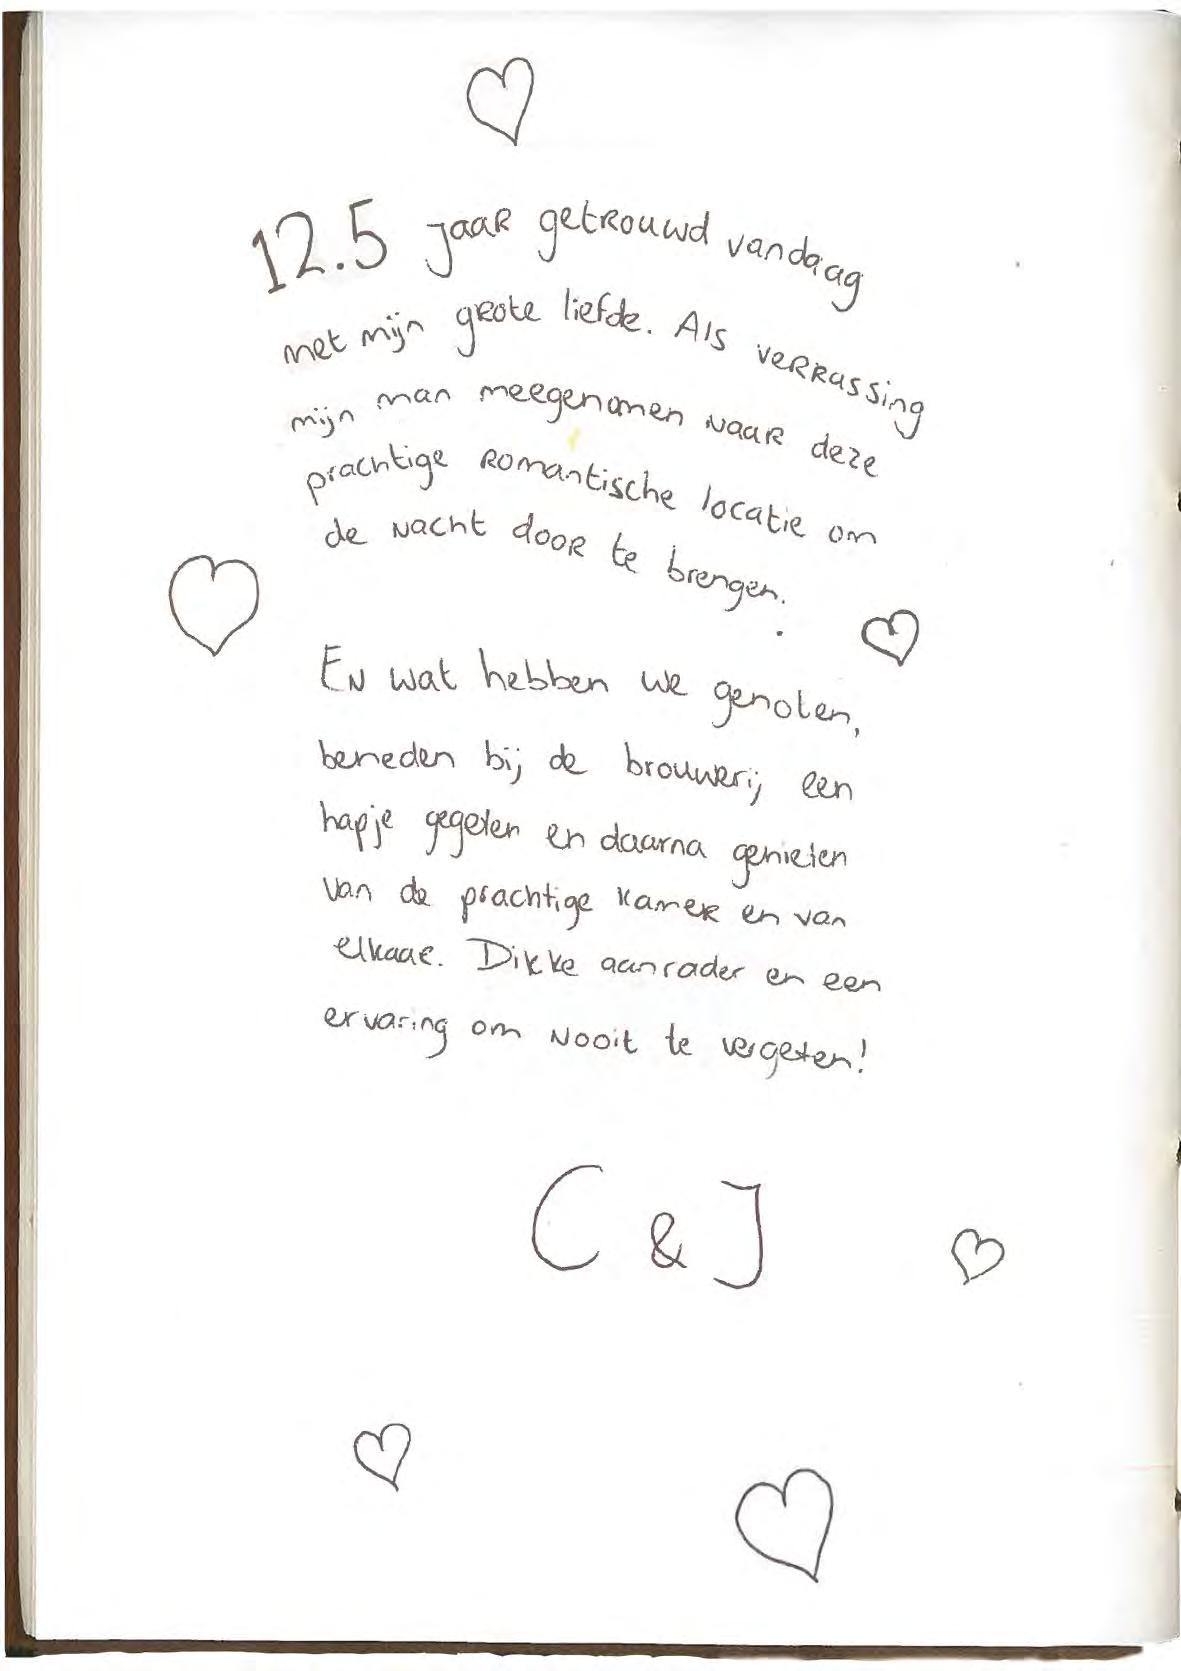 12.5 jaar getrouwd vandaag
met mijn grote liefde. Als verrassing
mijn man meegenomen naar deze
prachtige romantische locatie om
de nacht door te brengen.
En wat hebben we genoten,
beneden bij de brouwerij een
hapje gegeten en daarna genieten
van de prachtige kamer en van
elkaar. Dikke aanrader en een
ervaring om nooit te vergeten!
C & J